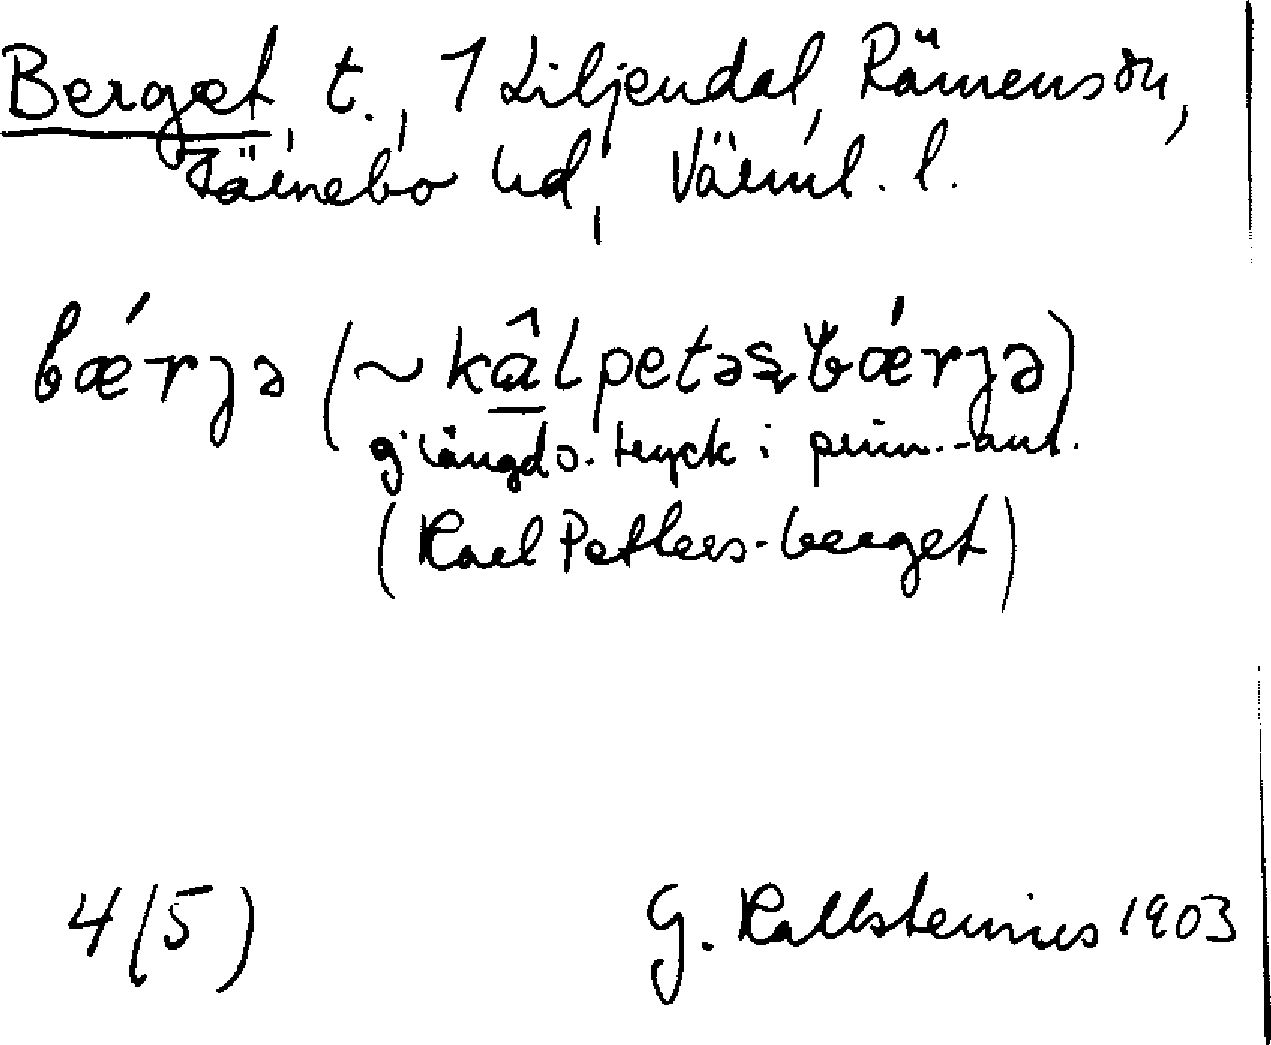 Berget, t., 1 Liljendal, Rämensön,
Färnebo hd, Värml. l.
bǽrȷə (~ kâlpetəsbǽrȷə)
g längds. tryck i penn.-ant.
(Karl Petters-berget)
4 (5)
G. Kallstenius 1903